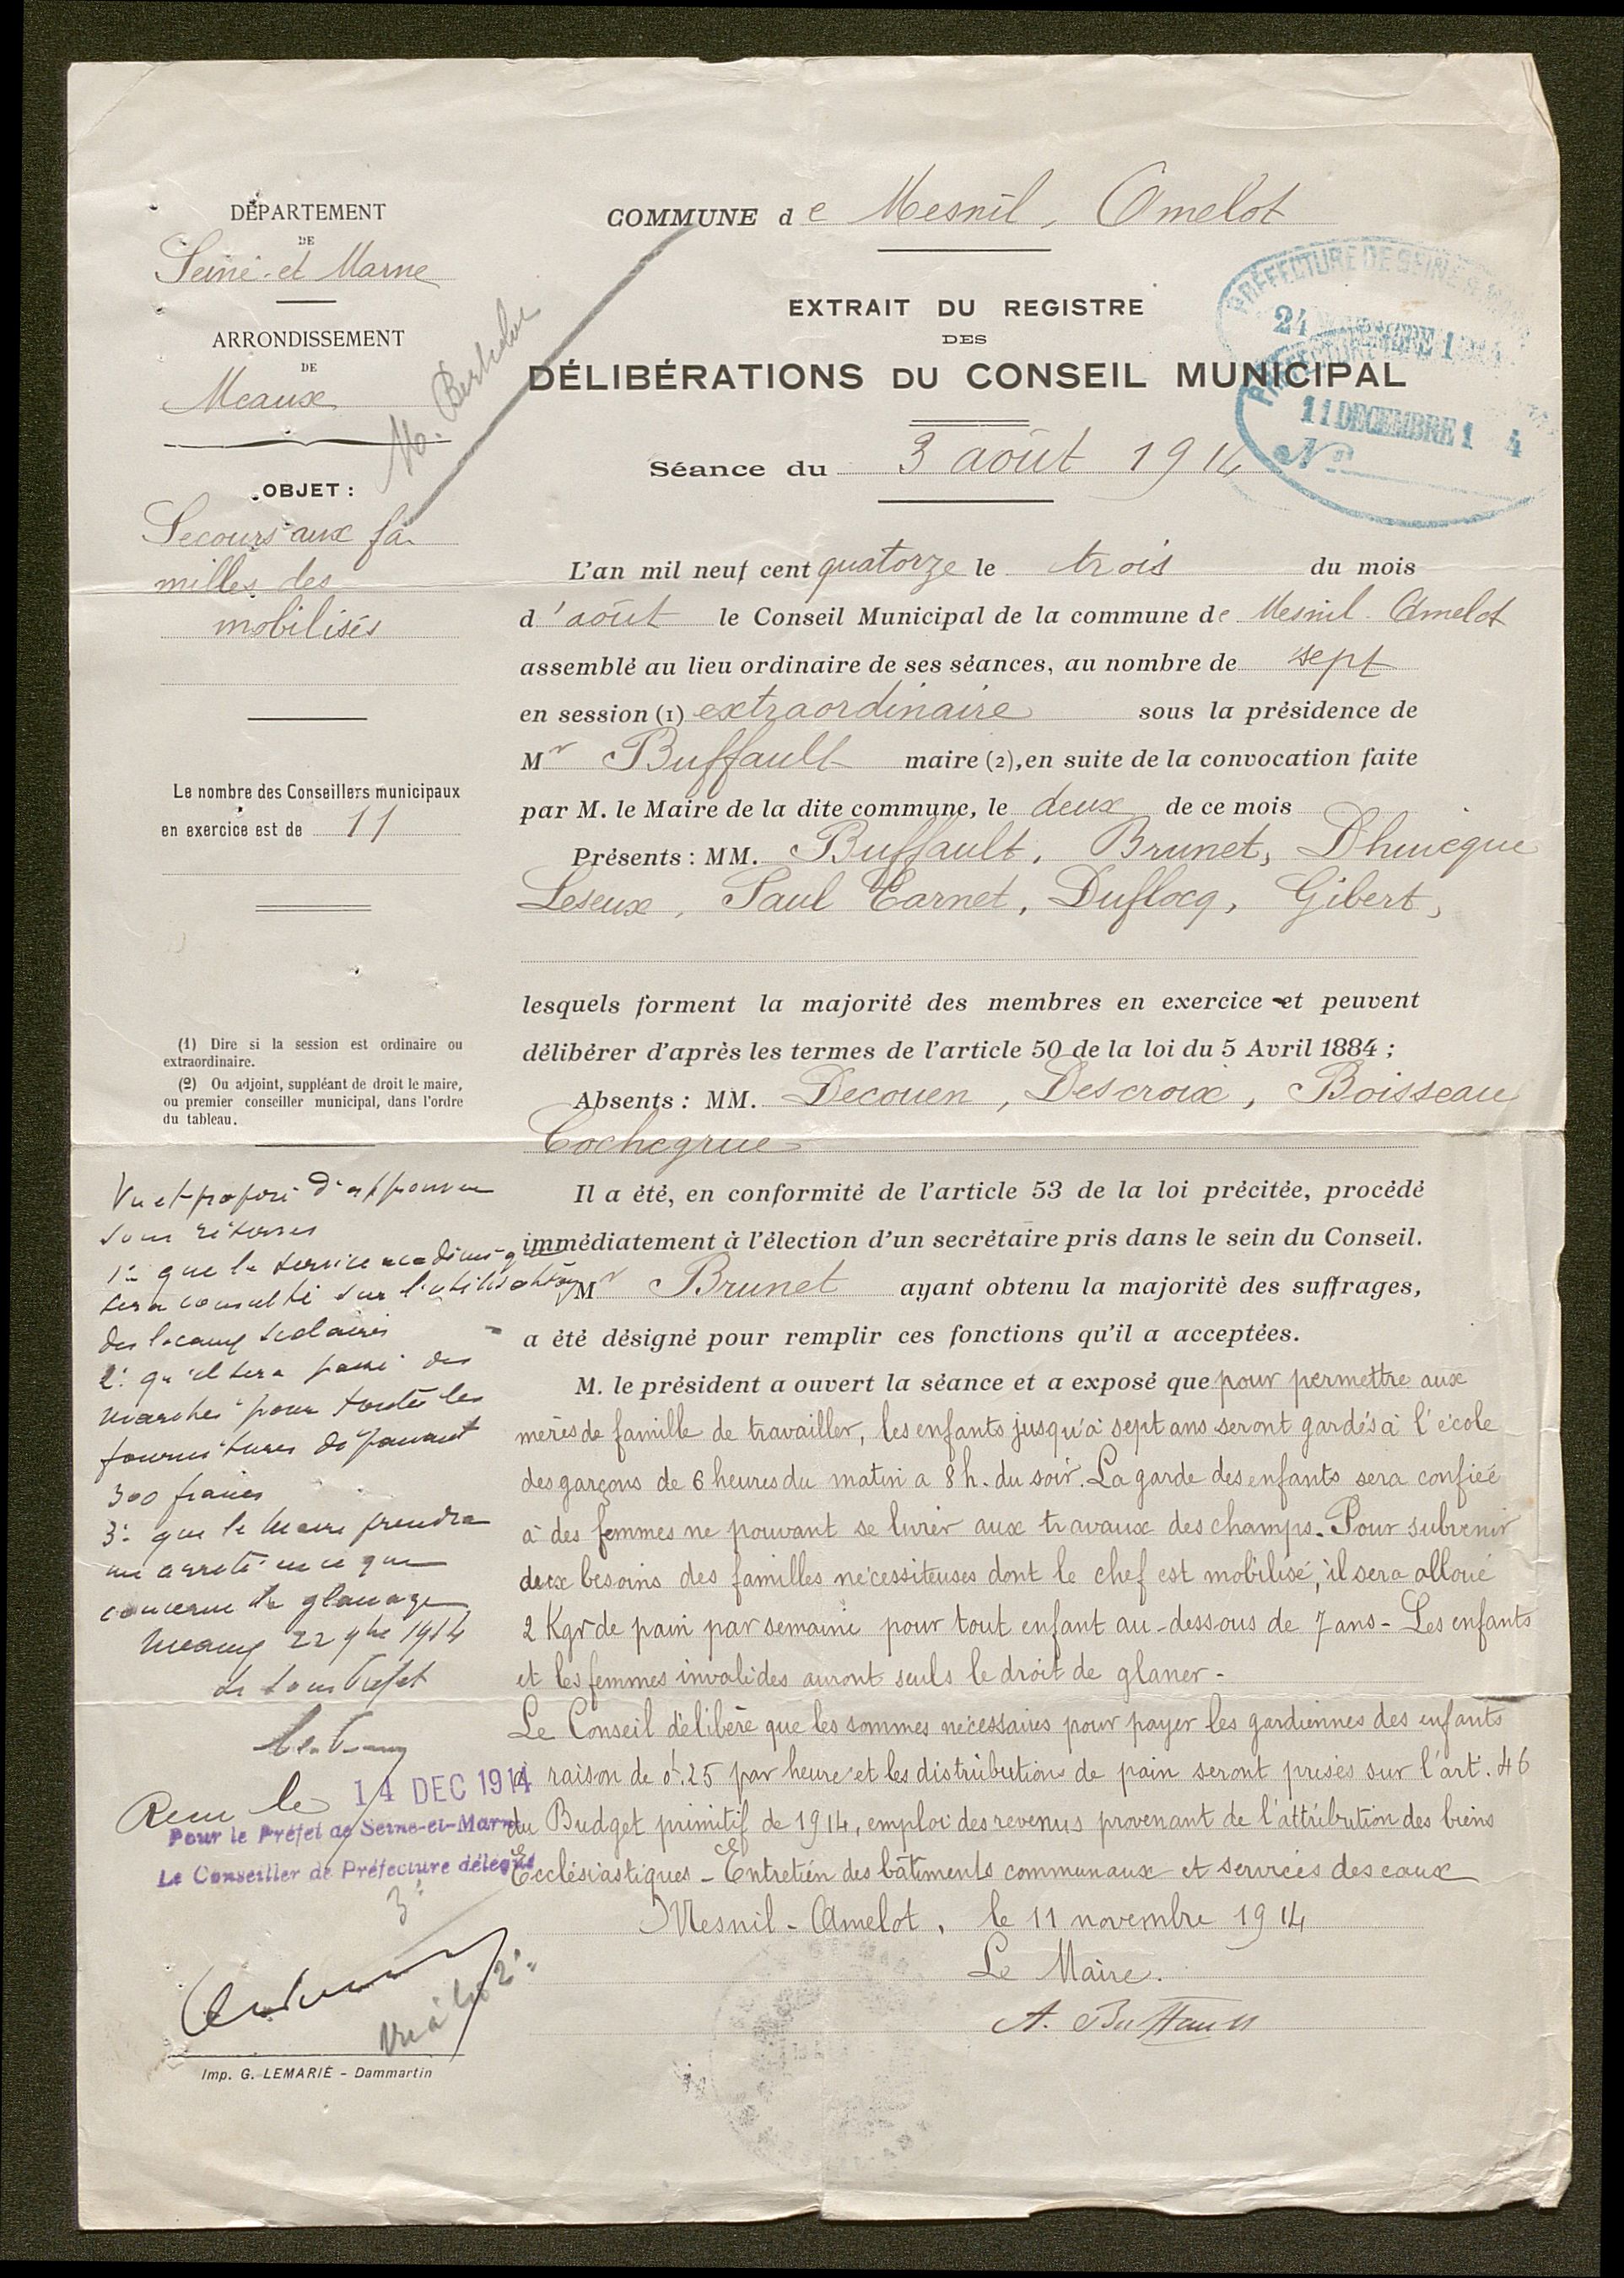 DÉPARTEMENT
DE
Seine-et Marne
ARRONDISSEMENT
DE
Meaux
M. Berthelot
OBJET :
Secours aux fa-
milles des
mobilisés
Le nombre des Conseillers municipaux
en exercice est de 11
(1) Dire si la session est ordinaire ou
extraordinaire.
(2) Ou adjoint, suppléant de droit le maire,
ou premier conseiller municipal, dans l'ordre
du tableau.
Vu et proposé d'approuver
sous réserves
1° que le service académique
sera consulté sur l'utilisation
des locaux scolaires
2° qu'il sera passé des
marchés pour toutes les
fournitures dépassant
300 francs
3° que le Maire prendra
un arrêté en ce qui
concerne le glanage
Meaux 22 9bre 1914
Le Sous Préfet
Revu le 14 DEC 1914
Pour le Préfet de Seine-et-Marne
Le Conseiller de Préfecture délégué
3°
Vu à la 2°
Imp. G. LEMARIÉ - Dammartin
COMMUNE de Mesnil, Amelot
EXTRAIT DU REGISTRE
DES
DÉLIBÉRATIONS DU CONSEIL MUNICIPAL
PRÉFECTURE DE SEINE & MARNE
24 NOVEMBRE 1914
PRÉFECTURE
11 DECEMBRE 1 4
N°
Séance du 3 août 1914
L'an mil neuf cent quatorze le trois du mois
d'août le Conseil Municipal de la commune de Mesnil Amelot
assemblé au lieu ordinaire de ses séances, au nombre de sept
en session (1) extraordinaire sous la présidence de
Mr Buffault maire (2), en suite de la convocation faite
par M. le Maire de la dite commune, le deux de ce mois
Présents : MM. Buffault, Brunet, Dhuicque
Leseux, Paul Tarnet, Duflocq, Gibert,
lesquels forment la majorité des membres en exercice et peuvent
délibérer d'après les termes de l'article 50 de la loi du 5 Avril 1884 ;
Absents : MM. Decouen, Descroix, Boisseau
Cochegrue
Il a été, en conformité de l'article 53 de la loi précitée, procédé
immédiatement à l'élection d'un secrétaire pris dans le sein du Conseil.
Mr Brunet ayant obtenu la majorité des suffrages,
a été désigné pour remplir ces fonctions qu'il a acceptées.
M. le président a ouvert la séance et a exposé que pour permettre aux
mères de famille de travailler, les enfants jusqu'à sept ans seront gardés à l'école
des garçons de 6 heures du matin a 8 h. du soir. La garde des enfants sera confiée
à des femmes ne pouvant se livrer aux travaux des champs. Pour subvenir
aux besoins des familles nécessiteuses dont le chef est mobilisé, il sera alloué
2 Kgr de pain par semaine pour tout enfant au-dessous de 7 ans - Les enfants
et les femmes invalides auront seuls le droit de glaner -
Le Conseil délibère que les sommes nécessaires pour payer les gardiennes des enfants
à raison de 0f.25 par heure et les distributions de pain seront prises sur l'art. 46
du Budget primitif de 1914, emploi des revenus provenant de l'attribution des biens
Ecclésiastiques - Entretien des bâtiments communaux et services des eaux
Mesnil-Amelot, le 11 novembre 1914
Le Maire.
A. Buffault